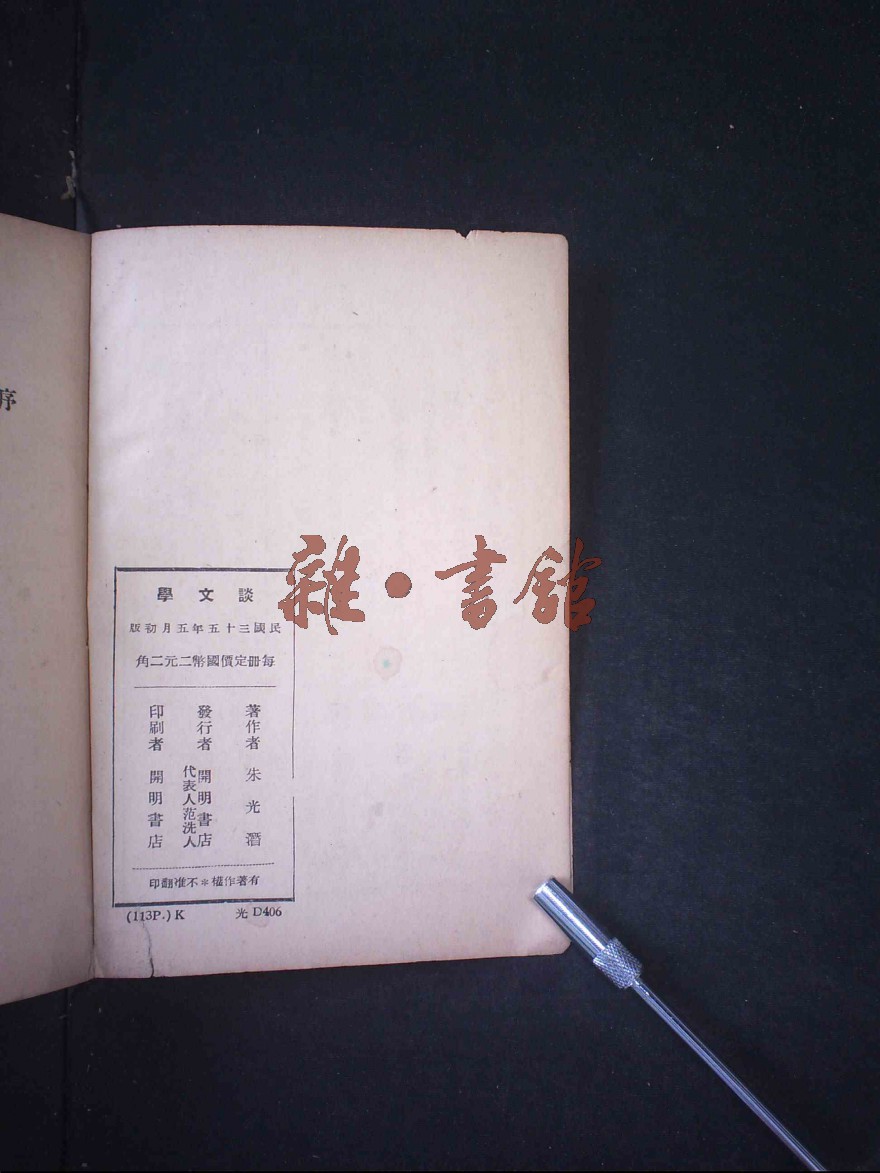 序
雜·書館
談文學
民國三十五年五月初版
每冊定價國幣二元二角
著作者 朱光潛
發行者 開明書店
代表人范洗人
印刷者 開明書店
有著作權＊不准翻印
(113P.) K 光 D406